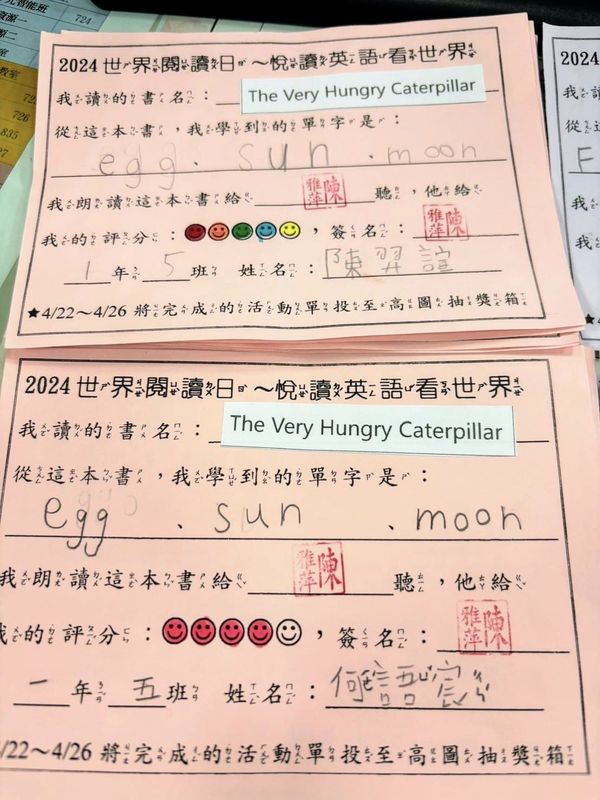 2024世界閱讀日~悅讀英語看世界
我讀的書名：The Very Hungry Caterpillar
從這本書，我學到的單字是：
egg、sun、moon
我朗讀這本書給 陳雅萍 聽，他給
我的評分：，簽名：陳雅萍
1年5班 姓名：陳羿諠
★4/22～4/26 將完成的活動單投至高圖抽獎箱
2024世界閱讀日~悅讀英語看世界
我讀的書名：The Very Hungry Caterpillar
從這本書，我學到的單字是：
egg、sun、moon
我朗讀這本書給 陳雅萍 聽，他給
我的評分：，簽名：陳雅萍
一年五班 姓名：何
/22～4/26 將完成的活動單投至高圖抽獎箱
724
726
835
2024
我讀
從這
我朗
我的